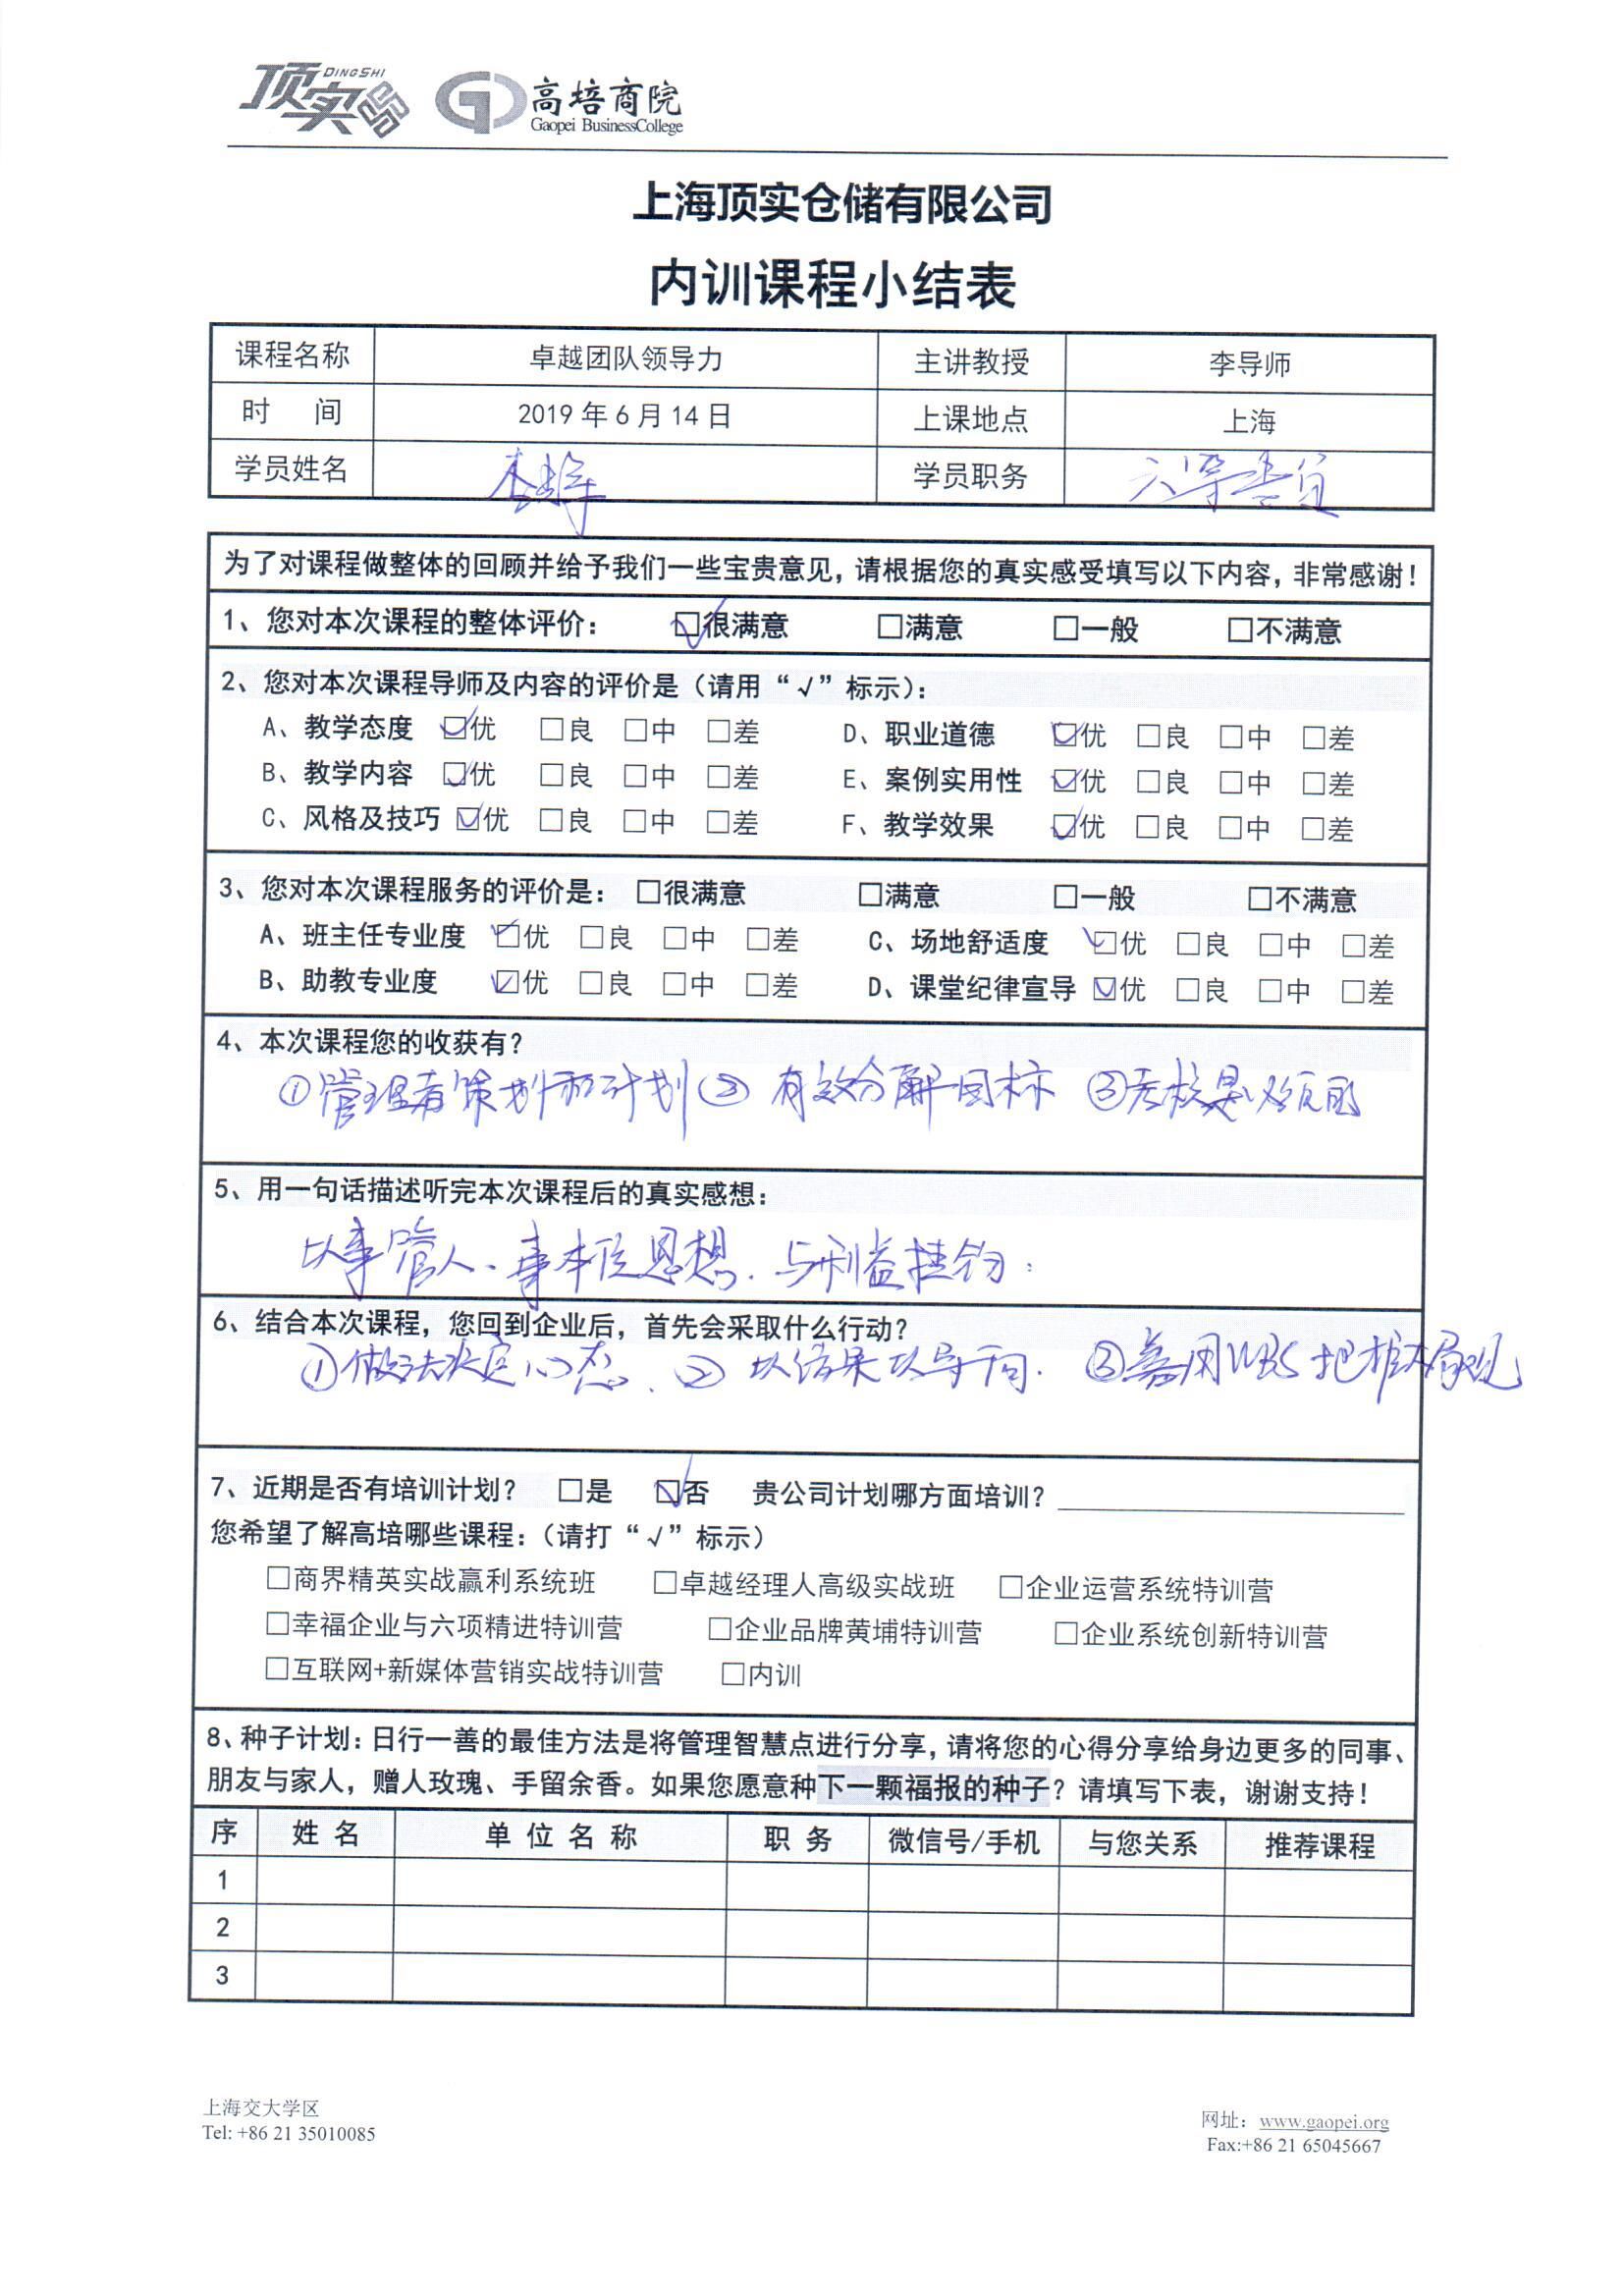 顶实 DINGSHI 高培商院
Gaopei BusinessCollege
上海顶实仓储有限公司
内训课程小结表
课程名称 卓越团队领导力 主讲教授 李导师
时 间 2019 年 6 月 14 日 上课地点 上海
学员姓名 学员职务
为了对课程做整体的回顾并给予我们一些宝贵意见，请根据您的真实感受填写以下内容，非常感谢！
1、您对本次课程的整体评价： ☑很满意 □满意 □一般 □不满意
2、您对本次课程导师及内容的评价是（请用“√”标示）：
A、教学态度 ☑优 □良 □中 □差 D、职业道德 ☑优 □良 □中 □差
B、教学内容 ☑优 □良 □中 □差 E、案例实用性 ☑优 □良 □中 □差
C、风格及技巧 ☑优 □良 □中 □差 F、教学效果 ☑优 □良 □中 □差
3、您对本次课程服务的评价是： □很满意 □满意 □一般 □不满意
A、班主任专业度 ☑优 □良 □中 □差 C、场地舒适度 ☑优 □良 □中 □差
B、助教专业度 ☑优 □良 □中 □差 D、课堂纪律宣导 ☑优 □良 □中 □差
4、本次课程您的收获有？
①管理者策划和计划 ② 有效分解目标 ③考核是必须的
5、用一句话描述听完本次课程后的真实感想：
以事管人、事本位思想. 与利益挂钩.
6、结合本次课程，您回到企业后，首先会采取什么行动？
①做法决定心态. ② 以结果以导向. ③善用WBS 把握大局观
7、近期是否有培训计划？ □是 ☑否 贵公司计划哪方面培训？
您希望了解高培哪些课程：（请打“√”标示）
□商界精英实战赢利系统班 □卓越经理人高级实战班 □企业运营系统特训营
□幸福企业与六项精进特训营 □企业品牌黄埔特训营 □企业系统创新特训营
□互联网+新媒体营销实战特训营 □内训
8、种子计划：日行一善的最佳方法是将管理智慧点进行分享，请将您的心得分享给身边更多的同事、
朋友与家人，赠人玫瑰、手留余香。如果您愿意种下一颗福报的种子？请填写下表，谢谢支持！
序 姓 名 单 位 名 称 职 务 微信号/手机 与您关系 推荐课程
1
2
3
上海交大学区
Tel: +86 21 35010085
网址：www.gaopei.org
Fax:+86 21 65045667